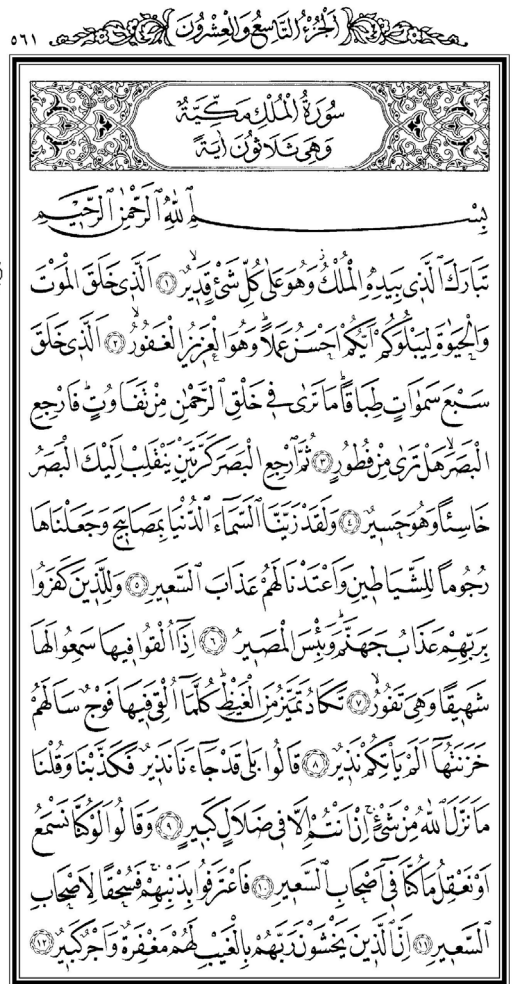 اَلْجُزْءُ التَّاسِعُ وَالْعِشْرُونَ
٥٦١
سُورَةُ الْمُلْكِ مَكِّيَّةٌ
وَهِيَ ثَلَاثُونَ اٰيَةً
بِسْمِ اللّٰهِ الرَّحْمٰنِ الرَّحِيمِ
تَبَارَكَ الَّذ۪ي بِيَدِهِ الْمُلْكُۘ وَهُوَ عَلٰى كُلِّ شَيْءٍ قَد۪يرٌۙ ﴿١﴾ اَلَّذ۪ي خَلَقَ الْمَوْتَ
وَالْحَيٰوةَ لِيَبْلُوَكُمْ اَيُّكُمْ اَحْسَنُ عَمَلًاۜ وَهُوَ الْعَز۪يزُ الْغَفُورُۙ ﴿٢﴾ اَلَّذ۪ي خَلَقَ
سَبْعَ سَمٰوَاتٍ طِبَاقًاۜ مَا تَرٰى ف۪ي خَلْقِ الرَّحْمٰنِ مِنْ تَفَاوُتٍۜ فَارْجِعِ
الْبَصَرَۙ هَلْ تَرٰى مِنْ فُطُورٍ ﴿٣﴾ ثُمَّ ارْجِعِ الْبَصَرَ كَرَّتَيْنِ يَنْقَلِبْ اِلَيْكَ الْبَصَرُ
خَاسِئًا وَهُوَ حَس۪يرٌ ﴿٤﴾ وَلَقَدْ زَيَّنَّا السَّمَٓاءَ الدُّنْيَا بِمَصَاب۪يحَ وَجَعَلْنَاهَا
رُجُومًا لِلشَّيَاط۪ينِ وَاَعْتَدْنَا لَهُمْ عَذَابَ السَّع۪يرِ ﴿٥﴾ وَلِلَّذ۪ينَ كَفَرُوا
بِرَبِّهِمْ عَذَابُ جَهَنَّمَۜ وَبِئْسَ الْمَص۪يرُ ﴿٦﴾ اِذَٓا اُلْقُوا ف۪يهَا سَمِعُوا لَهَا
شَه۪يقًا وَهِيَ تَفُورُۙ ﴿٧﴾ تَكَادُ تَمَيَّزُ مِنَ الْغَيْظِۜ كُلَّمَٓا اُلْقِيَ ف۪يهَا فَوْجٌ سَاَلَهُمْ
خَزَنَتُهَٓا اَلَمْ يَأْتِكُمْ نَذ۪يرٌ ﴿٨﴾ قَالُوا بَلٰى قَدْ جَٓاءَنَا نَذ۪يرٌ فَكَذَّبْنَا وَقُلْنَا
مَا نَزَّلَ اللّٰهُ مِنْ شَيْءٍۚ اِنْ اَنْتُمْ اِلَّا ف۪ي ضَلَالٍ كَب۪يرٍ ﴿٩﴾ وَقَالُوا لَوْ كُنَّا نَسْمَعُ
اَوْ نَعْقِلُ مَا كُنَّا ف۪ٓي اَصْحَابِ السَّع۪يرِ ﴿١٠﴾ فَاعْتَرَفُوا بِذَنْبِهِمْۚ فَسُحْقًا لِاَصْحَابِ
السَّع۪يرِ ﴿١١﴾ اِنَّ الَّذ۪ينَ يَخْشَوْنَ رَبَّهُمْ بِالْغَيْبِ لَهُمْ مَغْفِرَةٌ وَاَجْرٌ كَب۪يرٌ ﴿١٢﴾